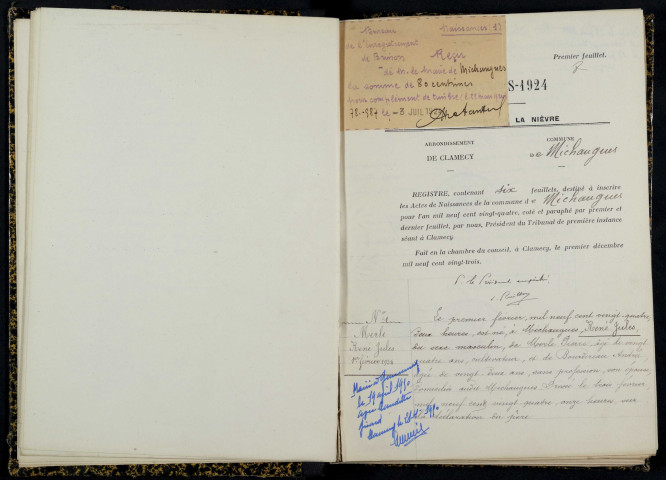 Bureau
de l'Enregistrement
de Brinon
Reçu
de M. le Maire de Michaugues
la somme de 80 centimes
pour complément de timbre
Premier feuillet.
S-1924
LA NIÈVRE
ARRONDISSEMENT
DE CLAMECY
COMMUNE
de Michaugues
REGISTRE, contenant six feuillets, destiné à inscrire
les Actes de Naissances de la commune de Michaugues
pour l'an mil neuf cent vingt-quatre, coté et paraphé par premier et
dernier feuillet, par nous, Président du Tribunal de première instance
séant à Clamecy
Fait en la chambre du conseil, à Clamecy, le premier décembre
mil neuf cent vingt-trois.
P. le Président empêché
N° 1
Merle
René Jules
1er février 1924
Le premier février, mil neuf cent vingt quatre,
deux heures, est né, à Michaugues, René Jules,
du sexe masculin, de Merle Pierre, âgé de vingt
quatre ans, cultivateur, et de
âgée de vingt deux ans, sans profession, son épouse,
domiciliés audit Michaugues. Dressé le trois février,
mil neuf cent vingt quatre, onze heures, sur
la déclaration du père
le 19 avril 1950